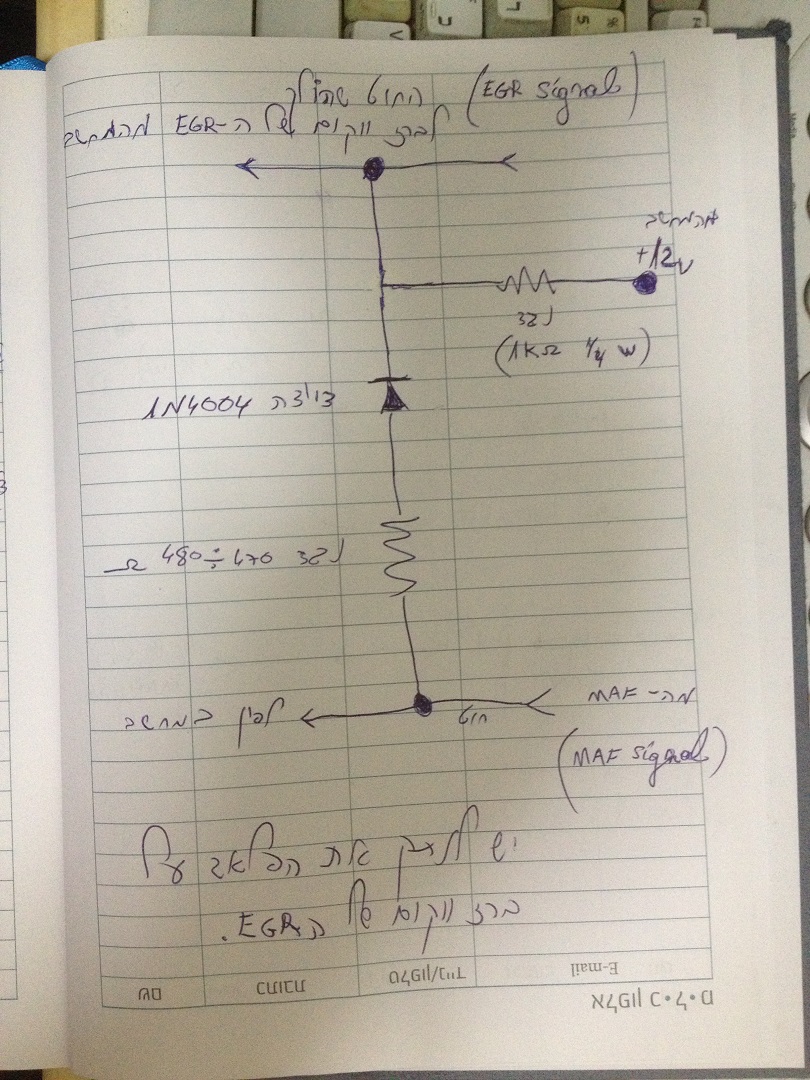 החוט שהולך (EGR signal)
לברז ווקום של ה-EGR מהמחשב
מהמחשב
+12v
נגד
(1KΩ 1/4 W)
דיודה 1N4004
נגד 470÷480 Ω
מה-MAF
חוט
לפין במחשב
(MAF signal)
יש לנתק את הפלאג על
ברז ווקום של ה EGR.
שם
כתובת
טלפון/נייד
E-mail
אלפון כ.ל.ס